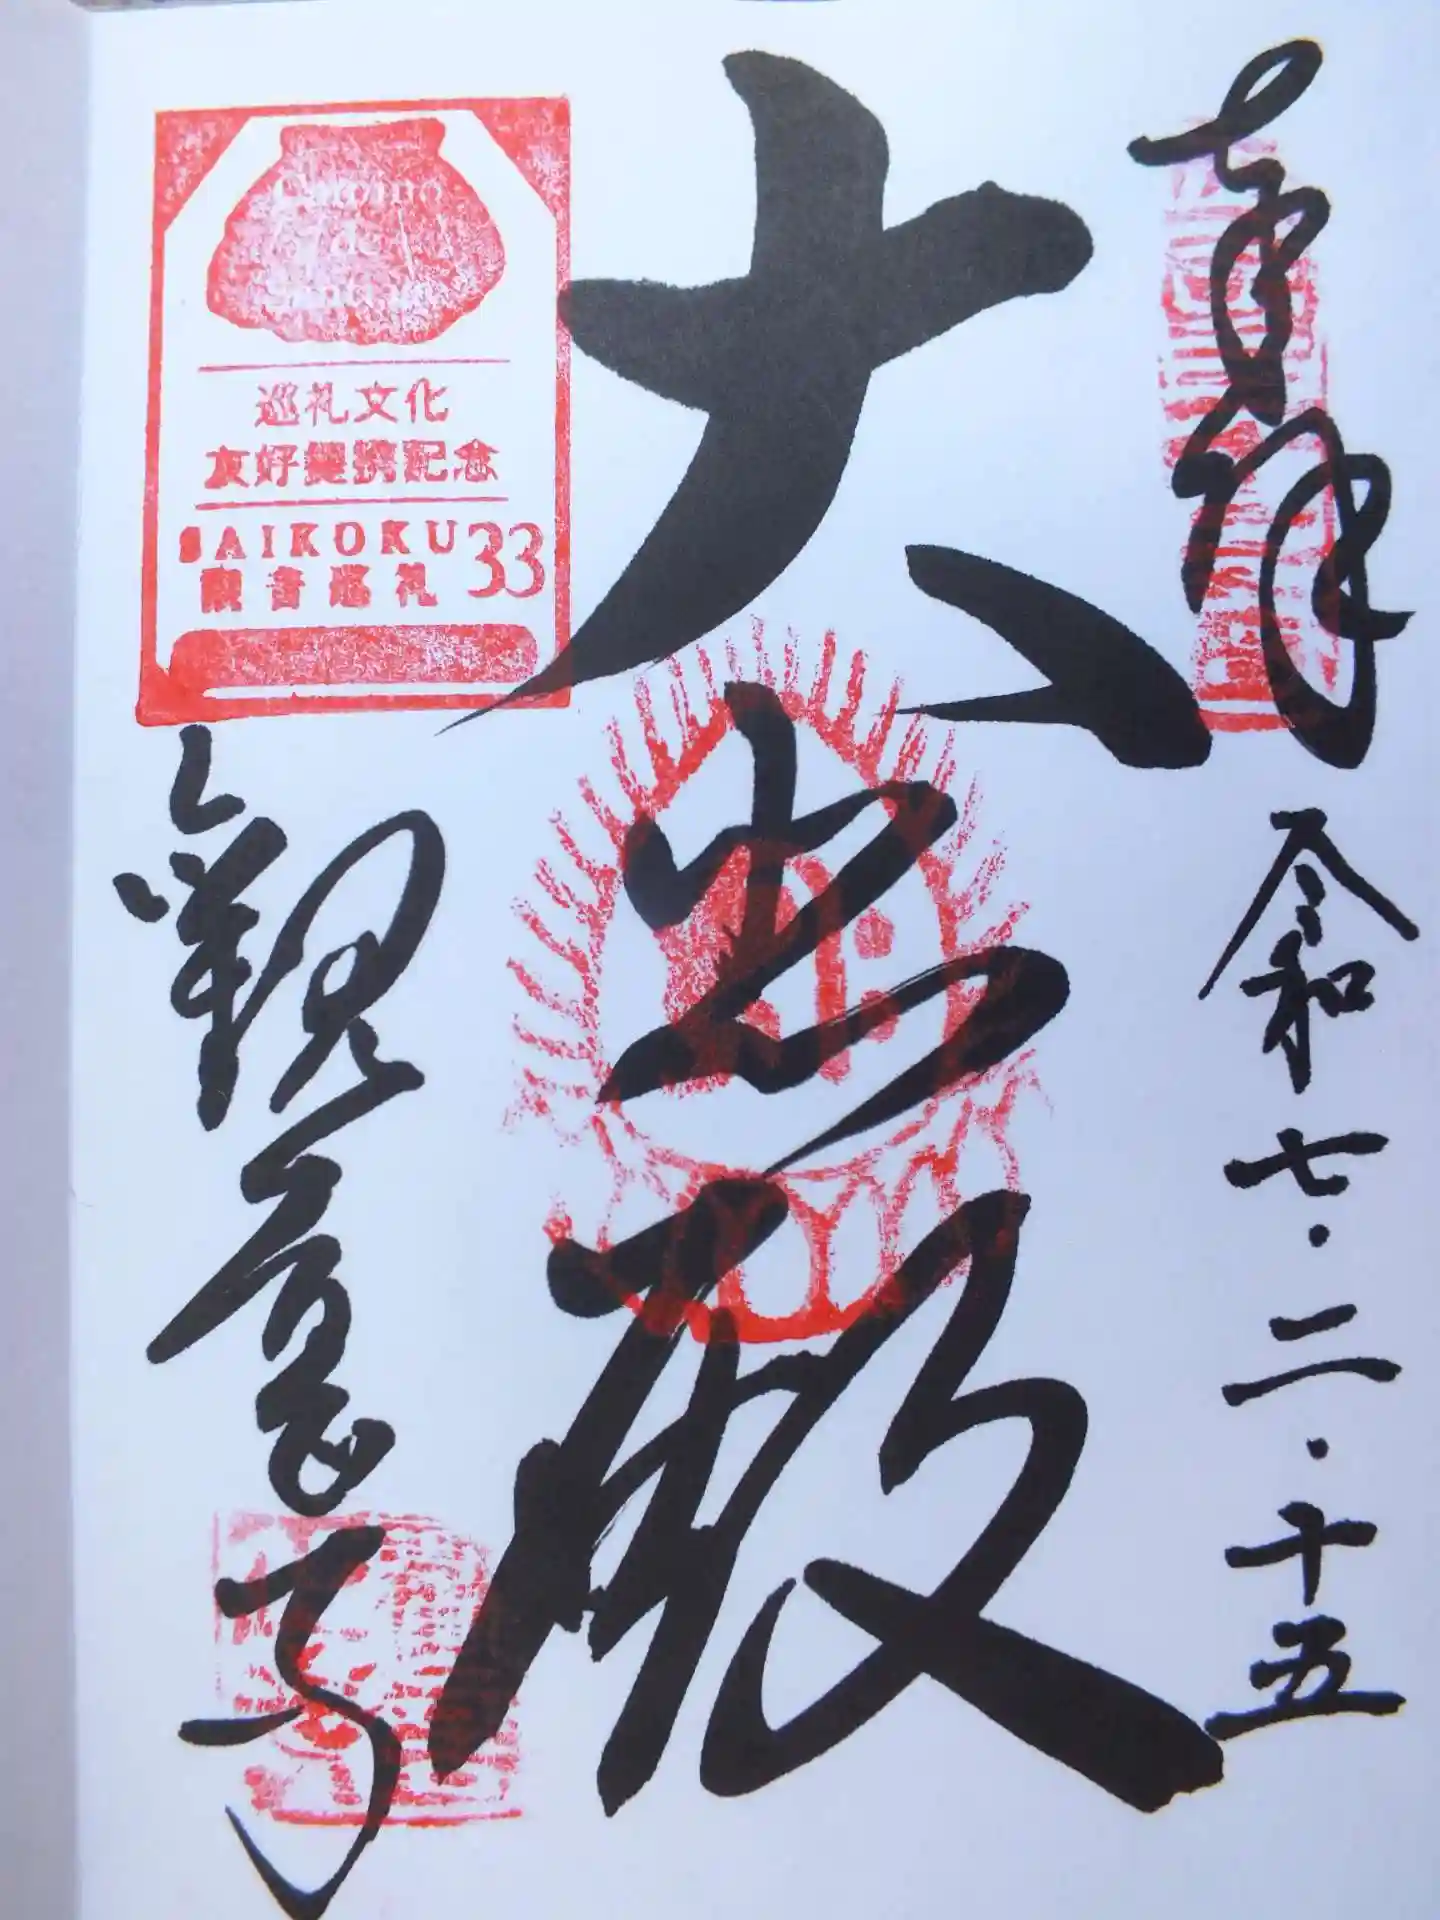 奉拝
令和七・二・十五
大悲殿
Camino
de
巡礼文化
友好提携記念
SAIKOKU 33
観音巡礼
観音寺